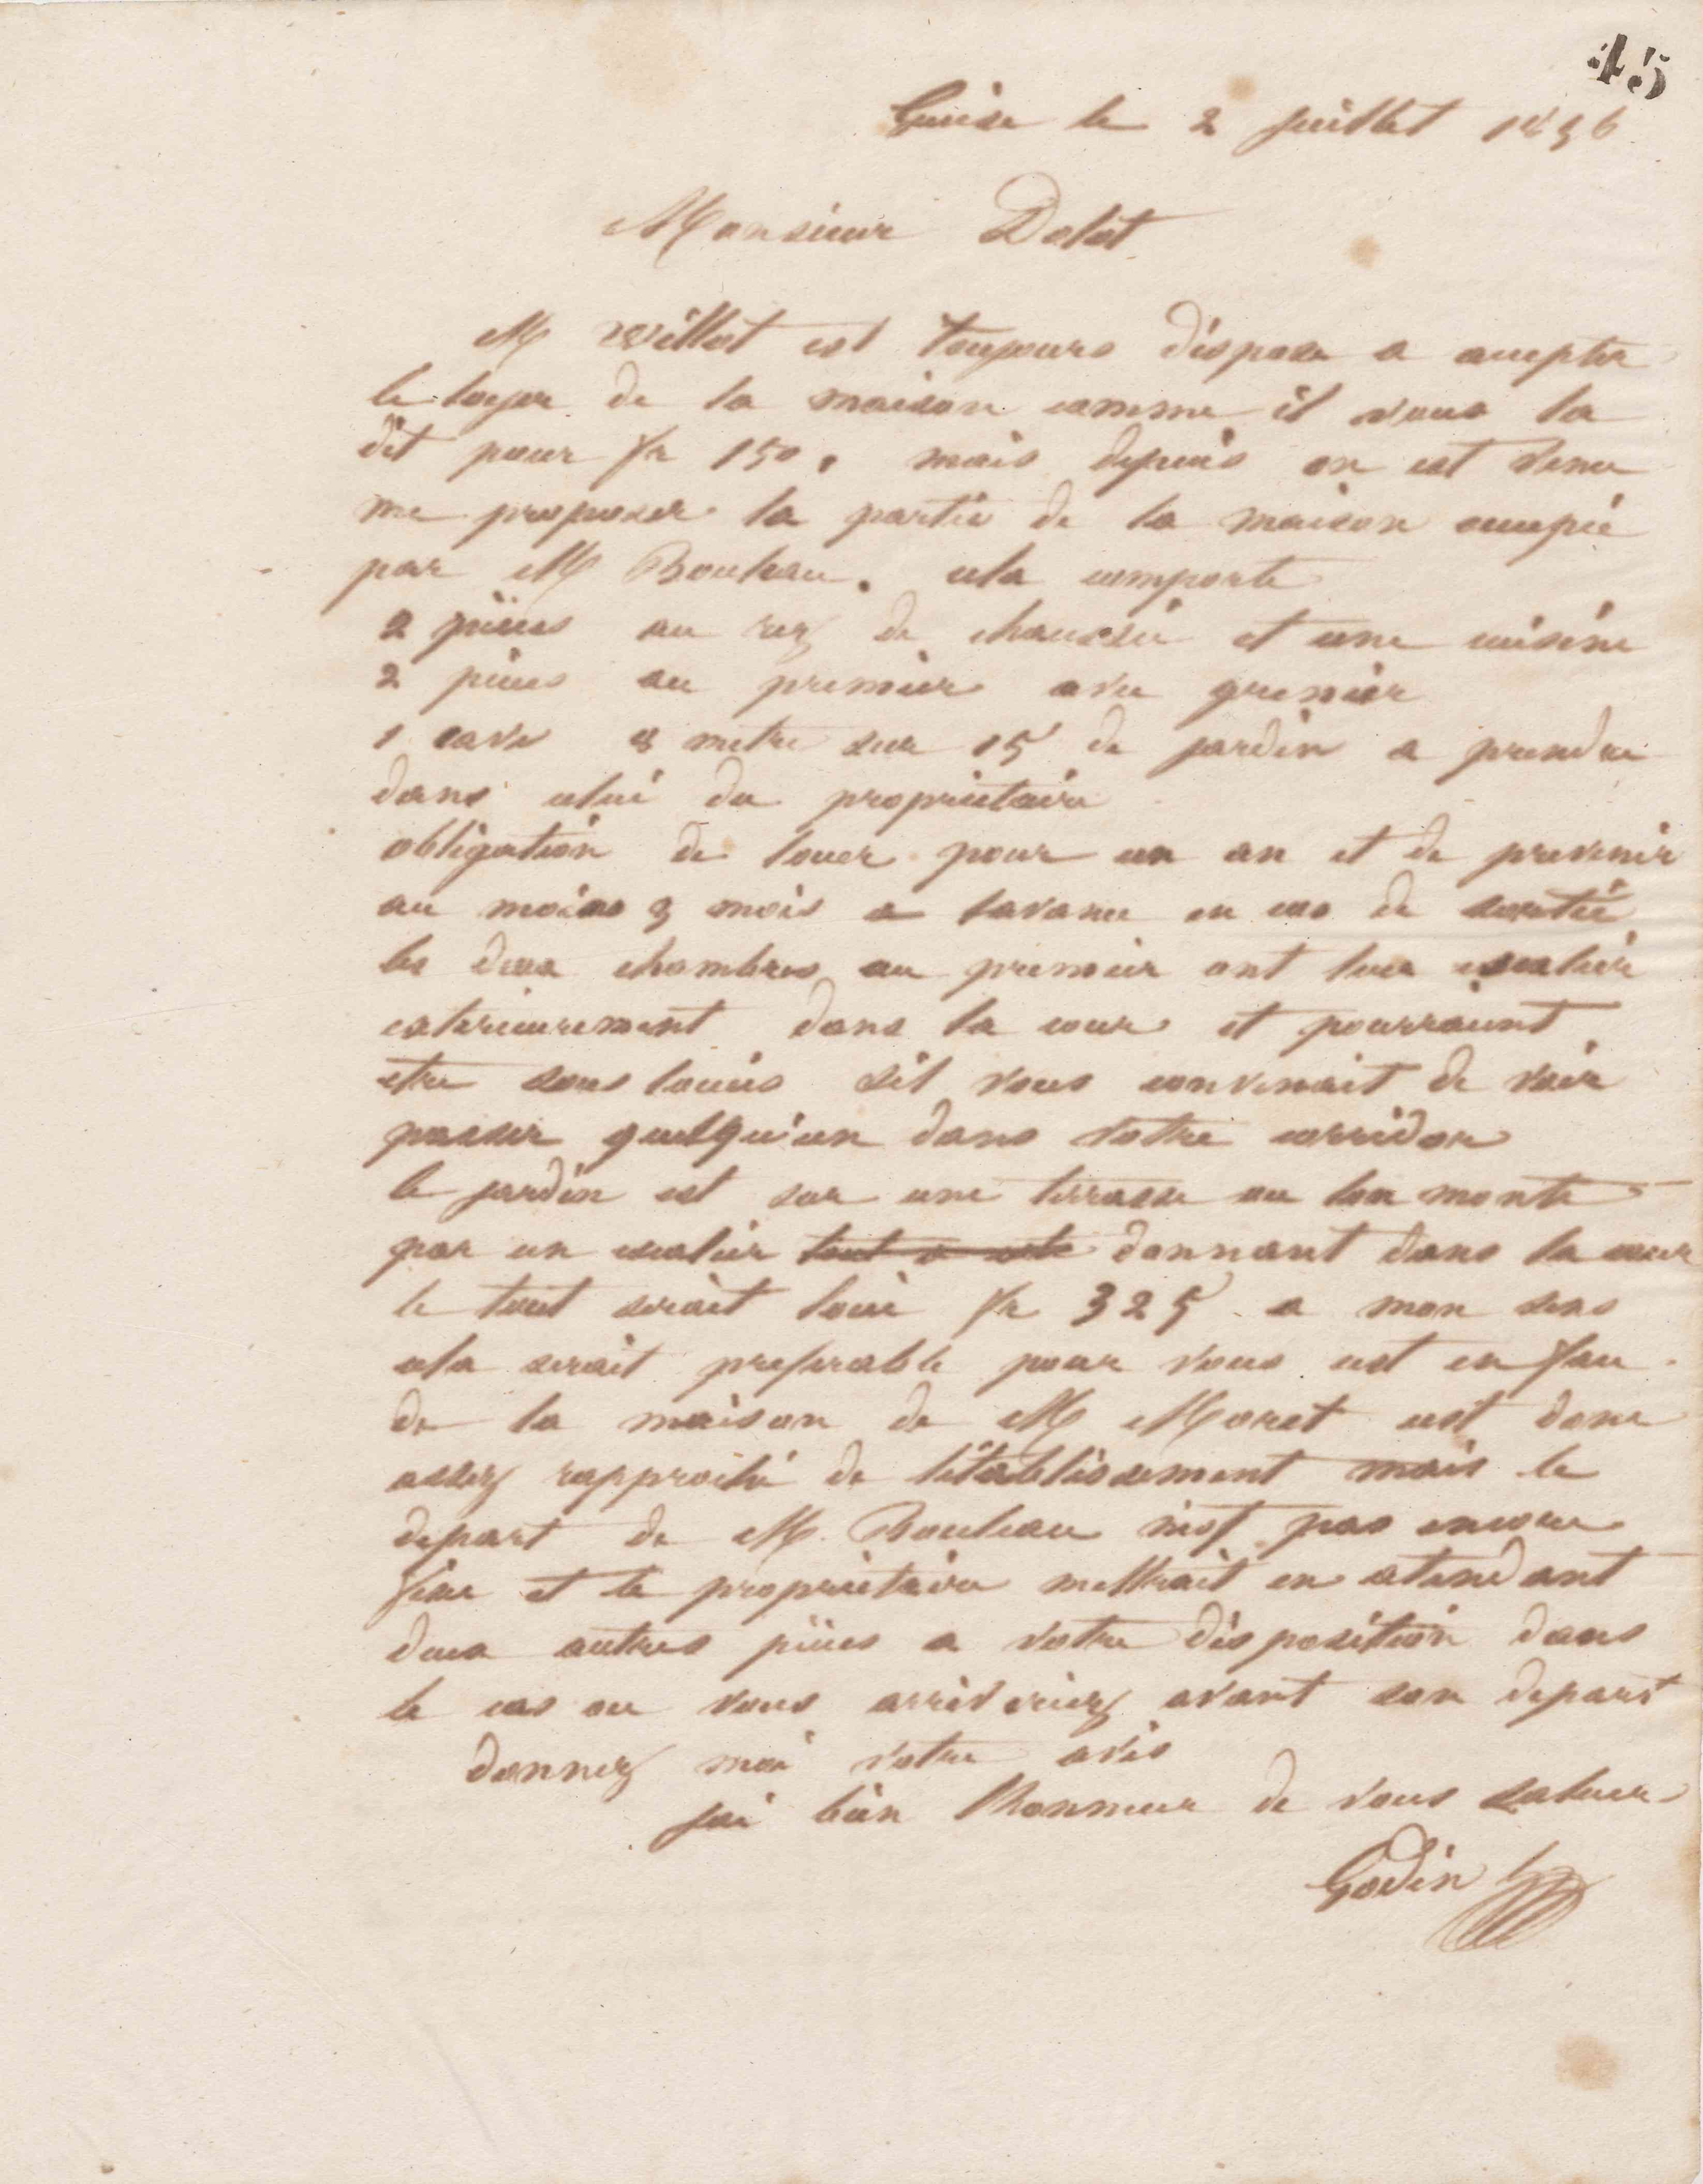 45
Guise le 2 juillet 1856
Monsieur Dolot
M Willot est toujours dispose a accepter
le loyer de la maison comme il vous la
dit pour fr 150. mais depuis on est venu
me proposer la partie de la maison occupée
par M Bouleau. cela comporte
2 pièces au rez de chaussée et une cuisine
2 pièces au premier avec grenier
1 cave 8 metre sur 15 de jardin a prendre
dans celui du proprietaire
obligation de louer pour un an et de prevenir
au moins 3 mois a lavance en cas de sortie
les deux chambres au premier ont leur escalier
exterieurement dans la cour et pourraient
etre sous louées sil vous convenait de voir
passer quelqu'un dans votre corridor
le jardin est sur une terrasse ou lon monte
par un escalier tout a coté donnant dans la cour
le tout serait loué fr 325 a mon sens
cela serait preferable pour vous cest en face
de la maison de M Moret cest donc
assez rapproché de létablissement mais le
depart de M. Bouleau nest pas encore
fixe et le proprietaire mettrait en atendant
deux autres pièces a votre disposition dans
le cas ou vous arriveriez avant son depart
donnez moi votre avis
jai bien lhonneur de vous saluer
Godin